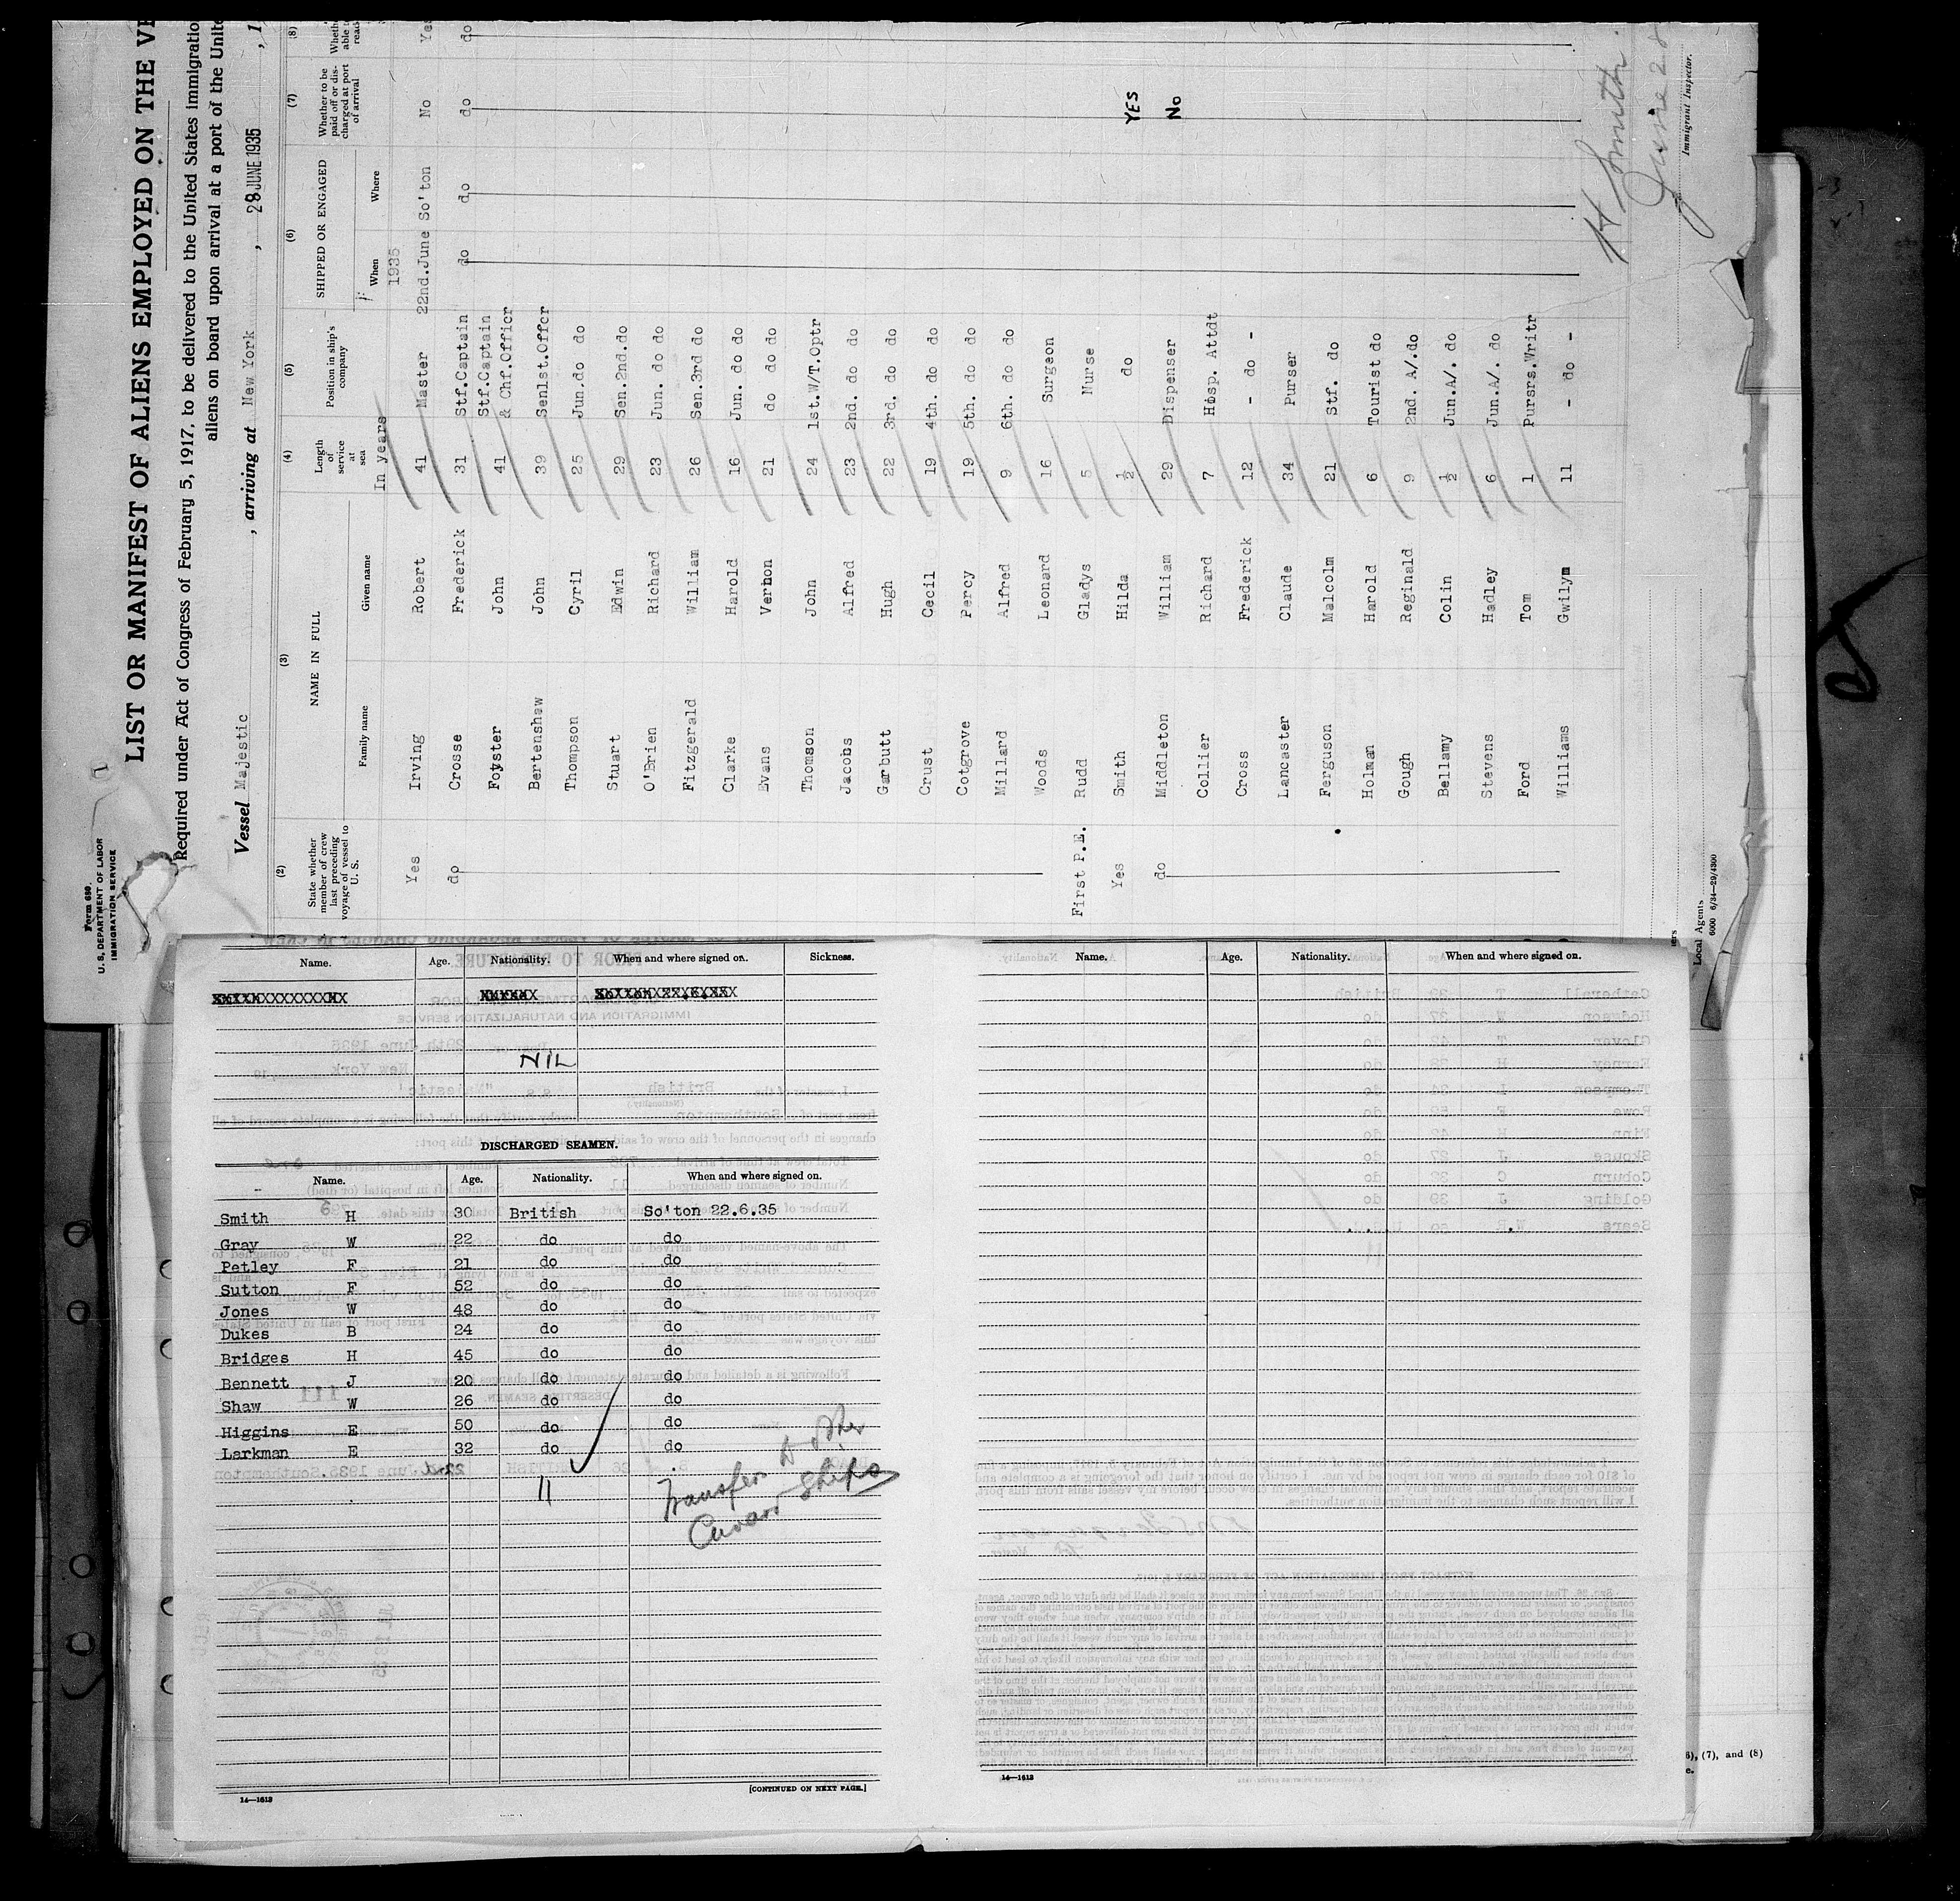 Form 680.
U. S. DEPARTMENT OF LABOR
IMMIGRATION SERVICE
LIST OR MANIFEST OF ALIENS EMPLOYED ON THE
Required under Act of Congress of February 5, 1917, to be delivered to the United States immigration
aliens on board upon arrival at a port of the
Vessel Majestic , arriving at New York , 28 JUNE 1935 , 1
(2) (3) (4) (5) (6) (7) (8)
State whether member of crew last preceding voyage of vessel to U. S.
NAME IN FULL
Family name Given name
Length of service at sea
In years
Position in ship's company
SHIPPED OR ENGAGED
When Where
1935
Whether to be paid off or discharged at port of arrival
Yes Irving Robert 41 Master 22nd.June So'ton No Yes
do Crosse Frederick 31 Stf.Captain do do do do
Foyster John 41 Stf.Captain & Chf.Officr
Bertenshaw John 39 Sen1st.Offcr
Thompson Cyril 25 Jun.do do
Stuart Edwin 29 Sen.2nd.do
O'Brien Richard 23 Jun. do do
Fitzgerald William 26 Sen.3rd do
Clarke Harold 16 Jun. do do
Evans Vernon 21 do do do
Thomson John 24 1st.W/T.Optr
Jacobs Alfred 23 2nd. do do
Garbutt Hugh 22 3rd. do do
Crust Cecil 19 4th. do do
Cotgrove Percy 19 5th. do do
Millard Alfred 9 6th. do do
Woods Leonard 16 Surgeon
First P.E. Rudd Gladys 5 Nurse
Yes Smith Hilda 1/2 do YES
do Middleton William 29 Dispenser No
Collier Richard 7 Hosp. Attdt
Cross Frederick 12 - do -
Lancaster Claude 34 Purser
Ferguson Malcolm 21 Stf. do
Holman Harold 6 Tourist do
Gough Reginald 9 2nd. A/.do
Bellamy Colin 1/2 Jun.A/. do
Stevens Hadley 6 Jun.A/. do
Ford Tom 1 Pursrs.Writr
Williams Gwilym 11 - do -
H Smith
June 28
Immigrant Inspector.
Local Agents
6000 6/34—29/4300
Name. Age. Nationality. When and where signed on. Sickness.
NIL
DISCHARGED SEAMEN.
Name. Age. Nationality. When and where signed on.
Smith H 30 British So'ton 22.6.35
Gray W 22 do do
Petley F 21 do do
Sutton F 52 do do
Jones W 48 do do
Dukes B 24 do do
Bridges H 45 do do
Bennett J 20 do do
Shaw W 26 do do
Higgins E 50 do do
Larkman E 32 do do
11
Transfer to other
Cunard Ships
[CONTINUED ON NEXT PAGE.]
14—1613
Name. Age. Nationality. When and where signed on.
14—1613
6), (7), and (8)
e.